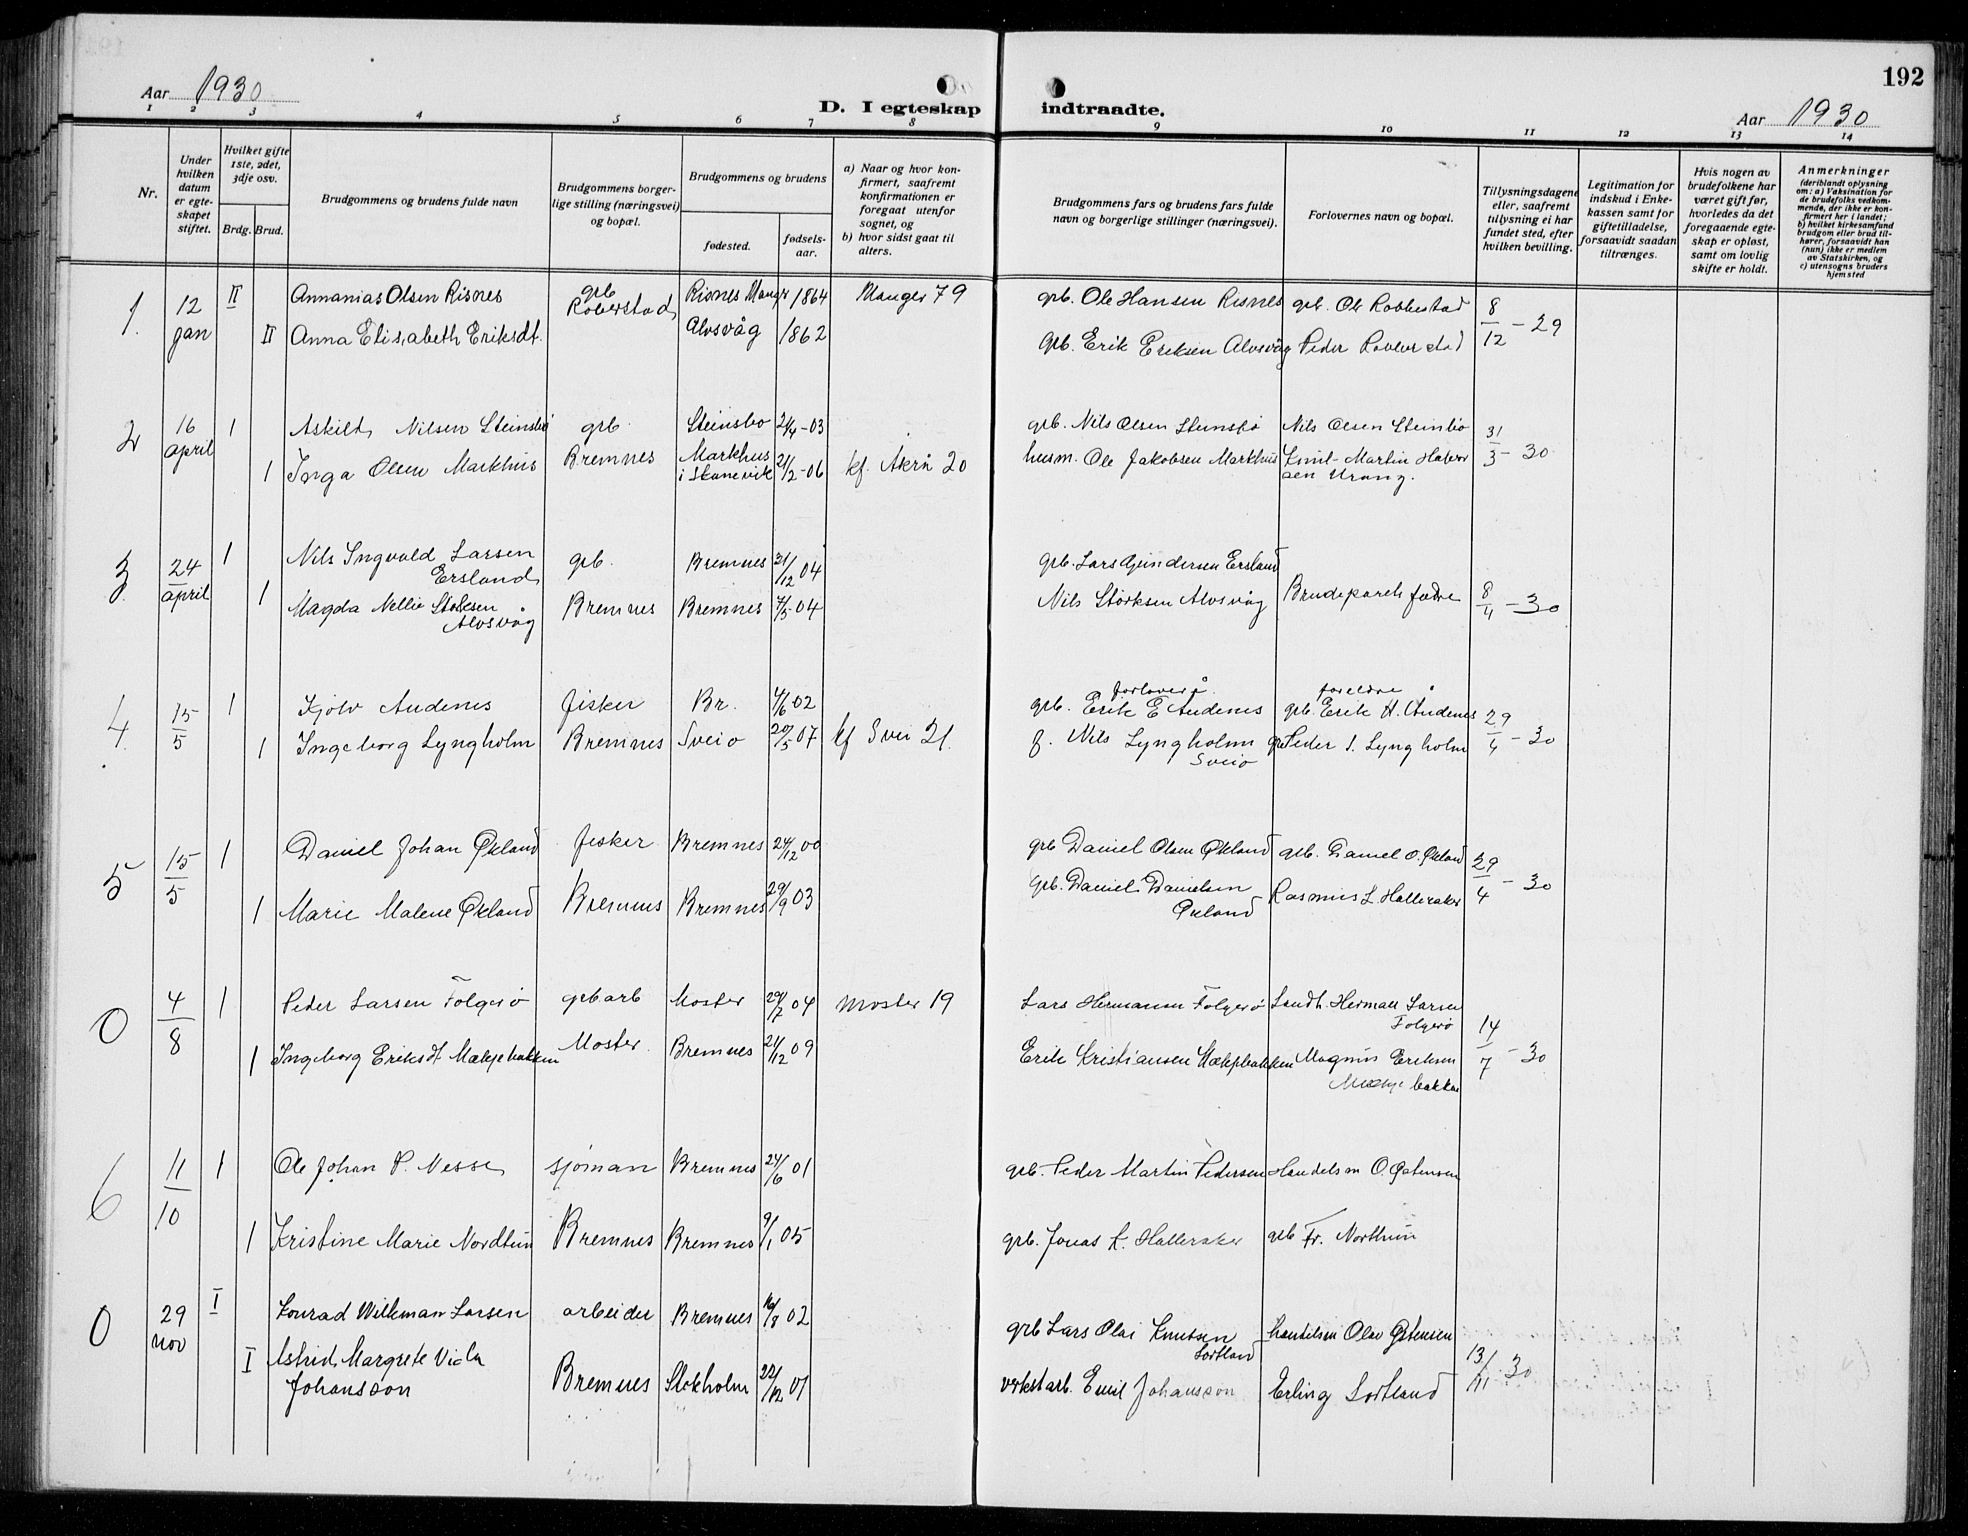 192
Aar 1930
D. I egteskap indtraadte.
Aar 1930
1 2 3 4 5 6 7 8 9 10 11 12 13 14
Nr.
Under hvilken datum er egteskapet stiftet.
Hvilket gifte 1ste, 2det, 3dje osv.
Brdg. Brud.
Brudgommens og brudens fulde navn
Brudgommens borgerlige stilling (næringsvei) og bopæl.
Brudgommens og brudens
fødested.
fødselsaar.
a) Naar og hvor konfirmert, saafremt konfirmationen er foregaat utenfor sognet, og
b) hvor sidst gaat til alters.
Brudgommens fars og brudens fars fulde navn og borgerlige stillinger (næringsvei).
Forlovernes navn og bopæl.
Tillysningsdagene eller, saafremt tillysning ei har fundet sted, efter hvilken bevilling.
Legitimation for indskud i Enkekassen samt for giftetilladelse, forsaavidt saadan tiltrænges.
Hvis nogen av brudefolkene har været gift før, hvorledes da det foregaaende egteskap er opløst, samt om lovlig skifte er holdt.
Anmerkninger
(deriblandt oplysning om: a) Vaksination for de brudefolks vedkommende, der ikke er konfirmert her i landet; b) hvilket kirkesamfund brudgom eller brud tilhører, forsaavidt han (hun) ikke er medlem av Statskirken, og c) utensogns bruders hjemsted
1. 12 jan II Annanias Olsen Risnes grb Risnes Manger 1864 Manger 79 grb. Ole Hansen Risnes grb. Ole Robbestad 8/12 - 29
II Anna Elisabeth Eriksdt. Alvsvåg 1862 grb. Erik Eriksen Alvsvåg Peder
2 16 april 1 Askild Nilsen Steinsbø grb. Steinsbo 2/4-03 grb. Nils Olsen Steinsbø Nils Olsen Steinbø 31/3 - 30
1 Inga Olsen Markhus Bremnes Markhus i Skanevik 2/2-06 kf. Åkra 20 husm. Ole Jakobsen Markhus Knut Martin
Urang.
3 24 april 1 Nils Ingvald Larsen Ersland grb. Bremnes 31/12 04 grb. Lars Gundersen Ersland
1 Magda Nellie Størksen Alvsvåg Bremnes Bremnes 7/5-04 Nils Størksen Alvsvåg Brudeparets fædre 8/4 - 30
4. 15/5 1 Kjølv Andenes fisker Br. 4/6 02 grb. Erik E Andenes grb. Erik H. Andenes 29/4 - 30
1 Ingeborg Lyngholm Bremnes Sveio 20/5 07 kf Svei 21. f. Nils Lyngholm Sveio Peder S. Lyngholm
5 15/5 1 Daniel Johan Økland fisker Bremnes 24/12 00 grb Daniel Olsen Økland grb. Daniel O. Økland 29/4 - 30
1 Marie Malene Økland Bremnes Bremnes 29/9 03 grb. Daniel Danielsen Økland Rasmus L Halleraker
0 4/8 1 Peder Larsen Folgerø grb arb Moster 29/7 04 Moster 19 Lars Hermansen Folgerø Landh. Herman Larsen Folgerø 14/7 - 30
1 Ingeborg Eriksdt Mækjebakken Moster. Bremnes 24/12 09 Erik Kristiansen Mækjebakken Magnus Eriksen
6 11/10 1 Ole Johan P. Nesse sjøman Bremnes 24/6 01 grb. Peder Martin Pedersen Handelsm O. Østensen
1 Kristine Marie Nordtun Bremnes Bremnes 9/1 05 grb. Jonas L. Halleraker grb Fr. Northun
0 29 nov I Konrad Wilkman Larsen arbeider Bremnes 16/8 02 grb Lars Olai Knutsen Lortland Olav Østensen 13/11 - 30
I Astrid Margrete Viola Johansson Bremnes Stokholm 22/12 01 verkstarb. Emil Johansson Erling Lortland